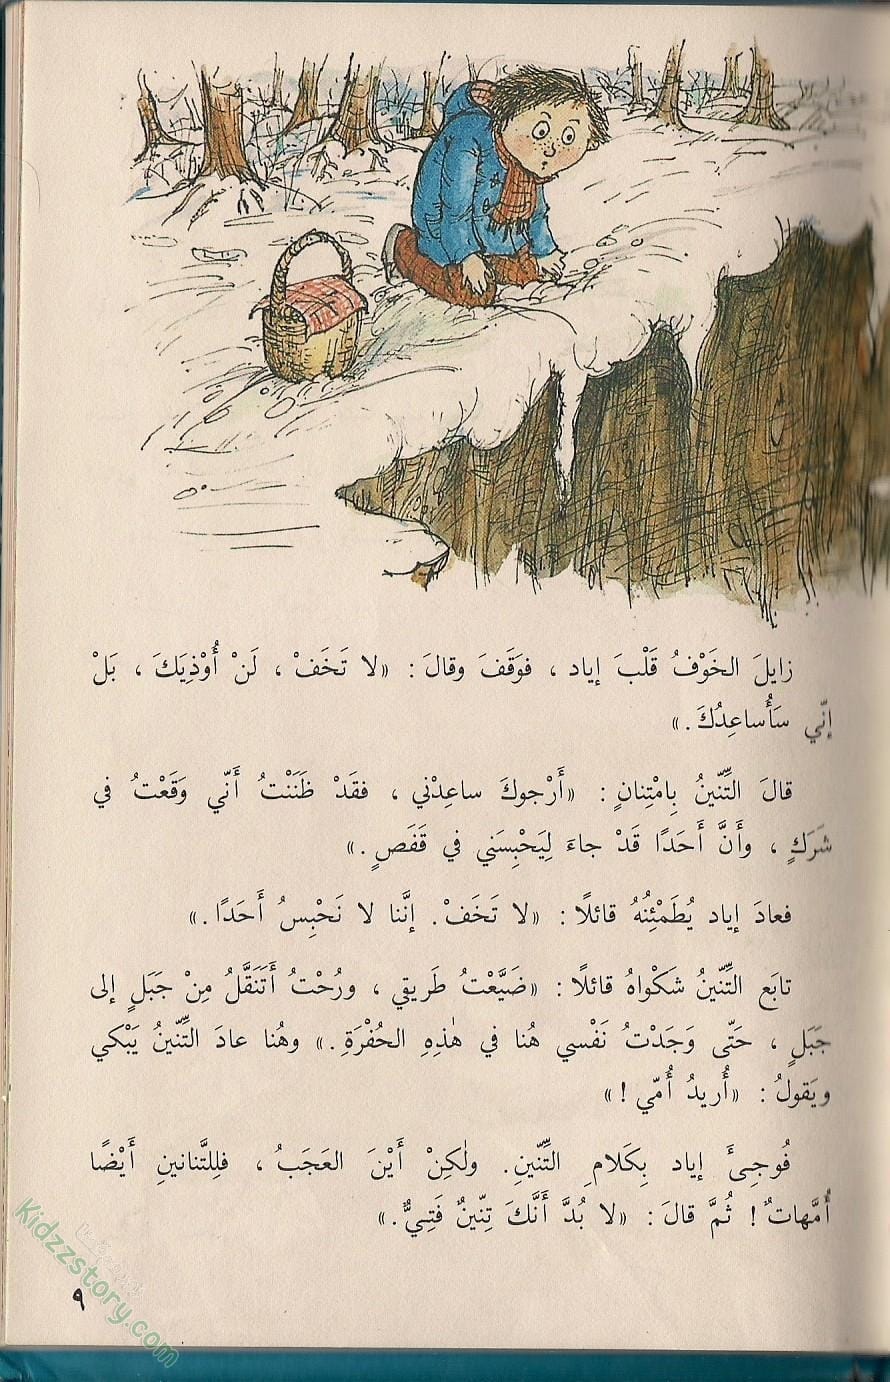 زايلَ الخَوْفُ قَلْبَ إياد ، فوَقَفَ وقالَ : «لا تَخَفْ ، لَنْ أُوْذِيَكَ ، بَلْ
إنّي سَأُساعِدُكَ .»
قالَ التِّنّينُ بِامْتِنانٍ : «أَرْجوكَ ساعِدْني ، فقَدْ ظَنَنْتُ أَنّي وَقَعْتُ في
شَرَكٍ ، وأَنَّ أَحَدًا قَدْ جاءَ لِيَحْبِسَني في قَفَصٍ .»
فعادَ إياد يُطَمْئِنُهُ قائلًا : «لا تَخَفْ. إنَّنا لا نَحْبِسُ أَحَدًا .»
تابَع التِّنّينُ شَكْواهُ قائلًا : «ضَيَّعْتُ طَريقي ، ورُحْتُ أَتَنَقَّلُ مِنْ جَبَلٍ إلى
جَبَلٍ ، حَتّى وَجَدْتُ نَفْسي هُنا في هٰذِهِ الحُفْرَةِ .» وهُنا عادَ التِّنّينُ يَبْكي
ويَقولُ : «أُريدُ أُمّي !»
فُوجِئَ إياد بِكَلامِ التِّنّينِ. ولٰكِنْ أَيْنَ العَجَبُ ، فلِلتَّنانينِ أَيْضًا
أُمَّهاتٌ ! ثُمَّ قالَ : «لا بُدَّ أَنَّكَ تِنّينٌ فَتِيٌّ .»
٩
Kidzzstory.com